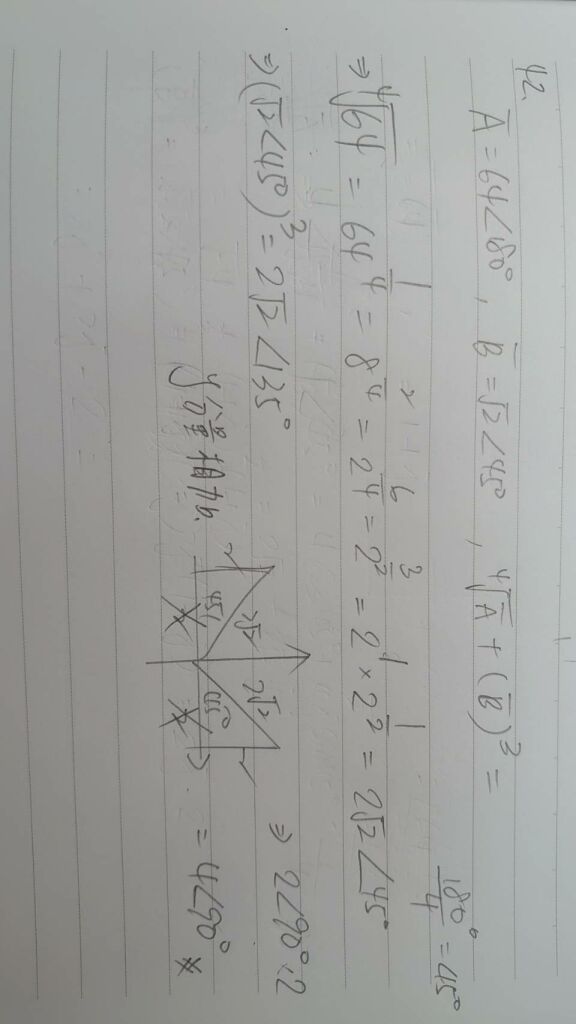 42.
Ā = 64∠180°, B̄ = √2∠45°, ⁴√Ā + (B̄)³ =
180°/4 = 45°
⇒ ⁴√64 = 64^(1/4) = 8^(2/4) = 2^(6/4) = 2^(3/2) = 2¹ × 2^(1/2) = 2√2∠45°
⇒ (√2∠45°)³ = 2√2∠135°
向量相加
2√2 2√2
2 45° 2
⇒ 2∠90°·2
= 4∠90°